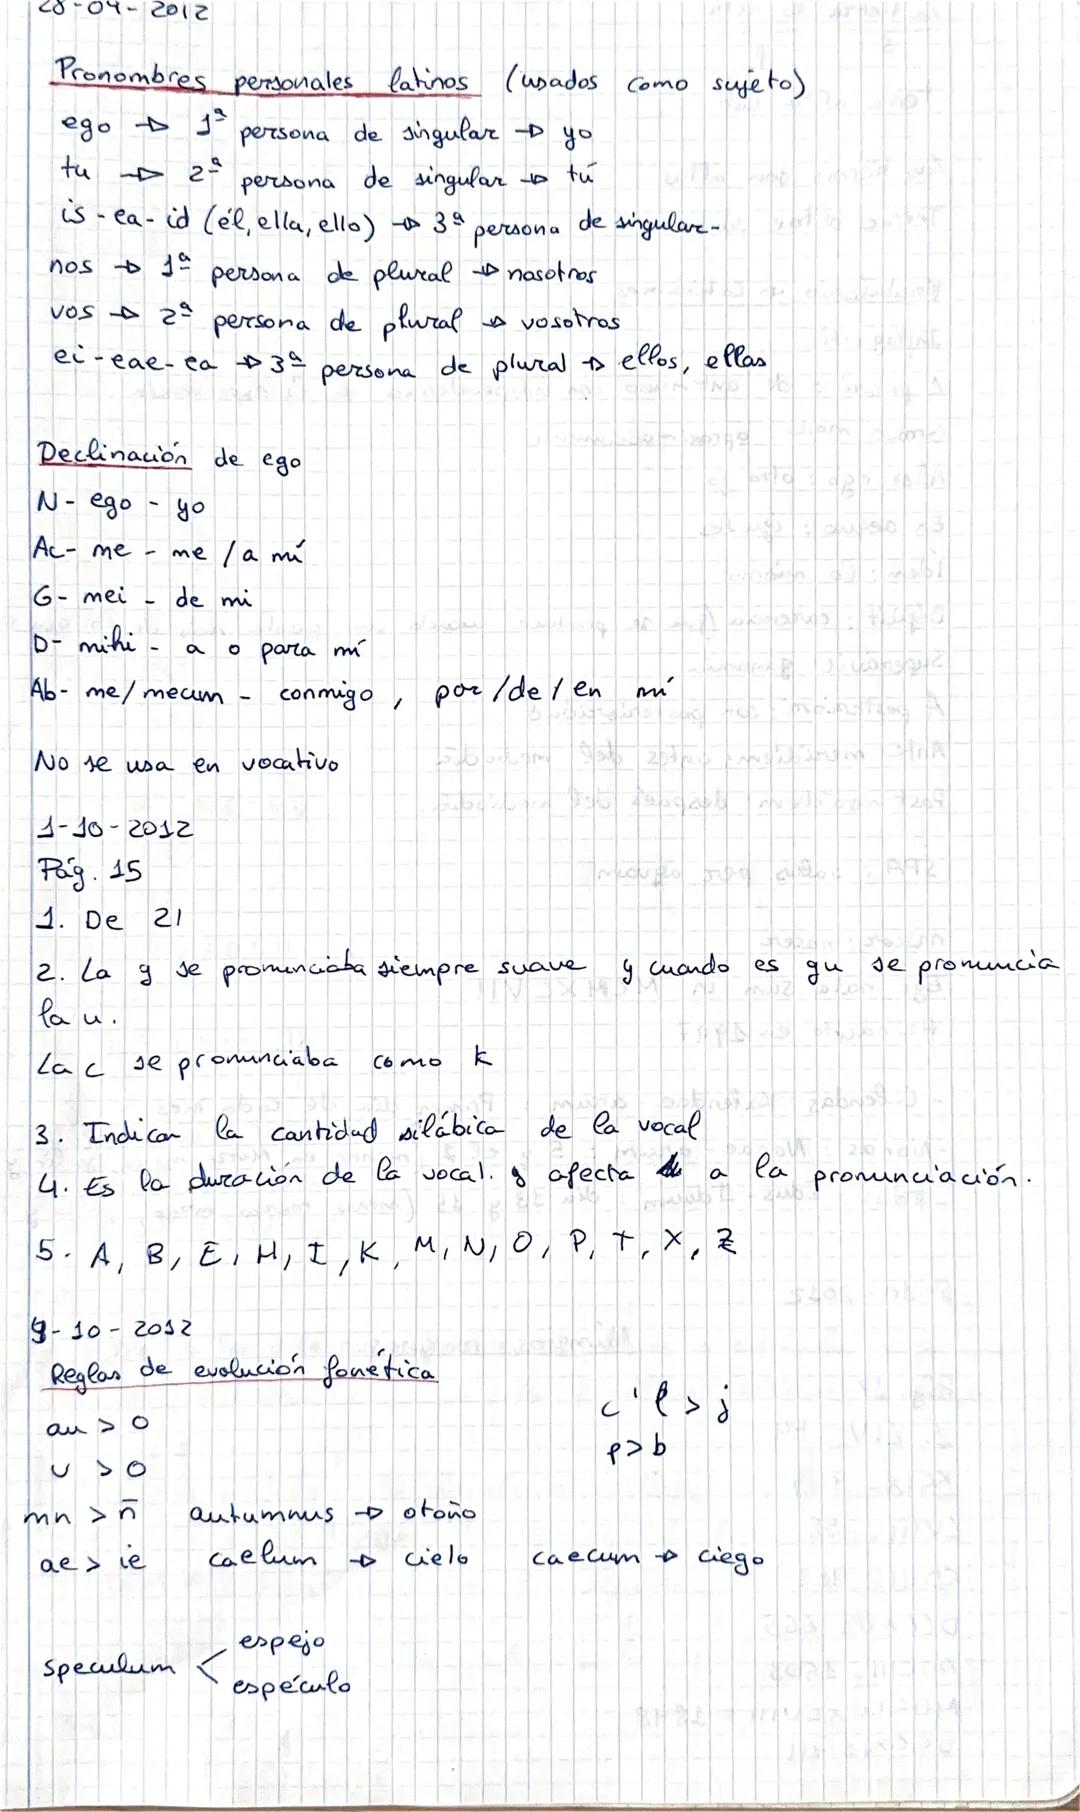 28-09-2012
Pronombres personales latinos (usados como sujeto)
ego → 1ª persona de singular → yo
tu → 2ª persona de singular → tú
is-ea-id (él, ella, ello) → 3ª persona de singular-
nos → 1ª persona de plural → nosotros
vos → 2ª persona de plural → vosotros
ei-eae-ea → 3ª persona de plural → ellos, ellas
Declinación de ego
N- ego - yo
Ac- me - me / a mí
G- mei - de mi
D- mihi - a o para mí
Ab- me/mecum - conmigo, por/de/en mí
No se usa en vocativo
1-10-2012
Pág. 15
1. De 21
2. La g se pronunciaba siempre suave y cuando es gu se pronuncia
la u.
La c se pronunciaba como k
3. Indicar la cantidad silábica de la vocal
4. Es la duración de la vocal. y afecta a la pronunciación.
5. A, B, E, H, I, K, M, N, O, P, T, X, Z
9-10-2012
Reglas de evolución fonética
au > o
c'l > j
u > o
p > b
mn > ñ autumnus → otoño
ae > ie caelum → cielo caecum → ciego
speculum < espejo
espéculo